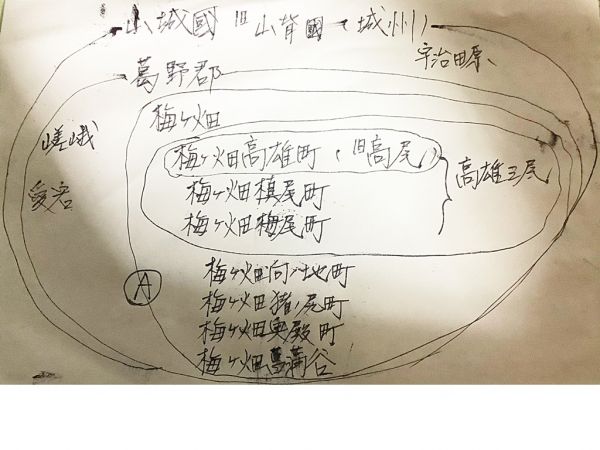 山城國(旧山背國、城州)
宇治田原、
葛野郡
梅ヶ畑
嵯峨
愛宕
梅ヶ畑高雄町(旧高尾)
高雄三尾
梅ヶ畑槙尾町
梅ヶ畑栂尾町
A
梅ヶ畑向ノ地町
梅ヶ畑猪ノ尻町
梅ヶ畑奥殿町
梅ヶ畑菖蒲谷